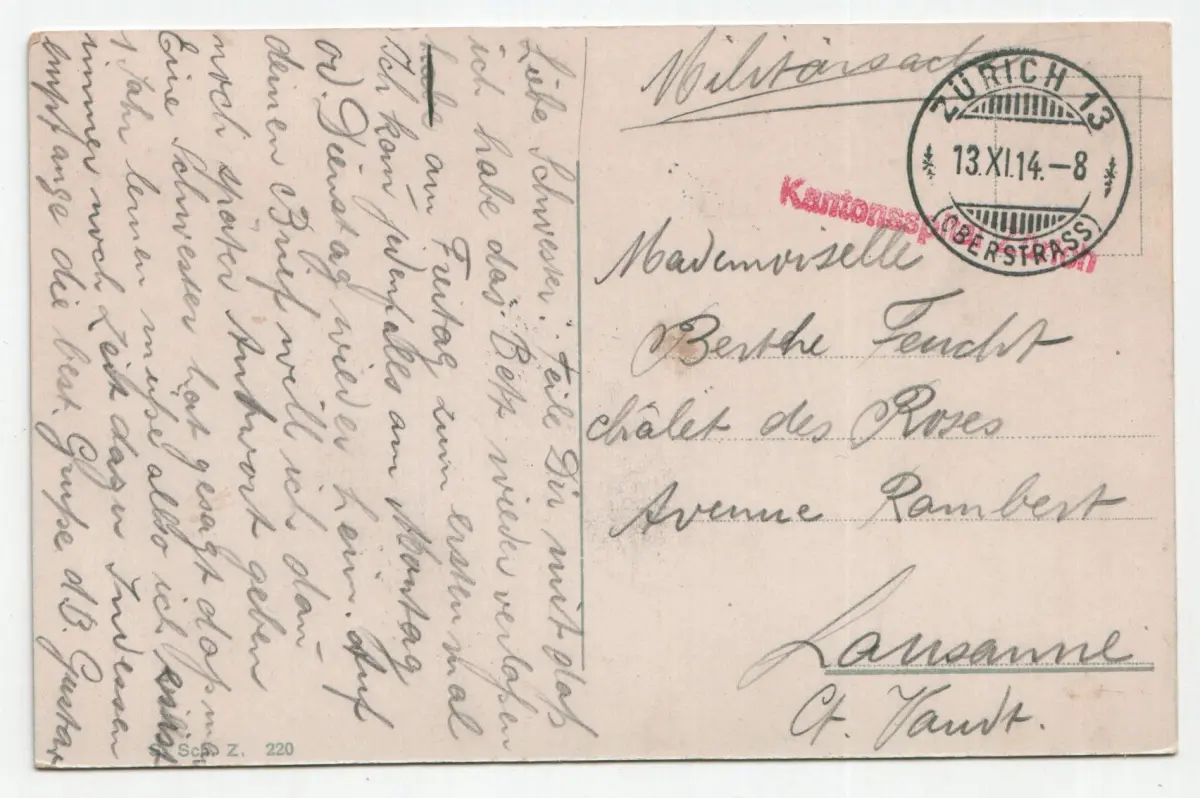 Liebe Schwester. Teile Dir mit daß
ich habe das Bett wieder verlaßen
am Freitag zum ersten mal
Ich kom̄ jedenfalls am Montag
od. Dienstag wieder heim. Auf
deinen Brief will ich dan̄
noch später Antwort geben
Eine Schwester hat gesagt daß man
1 Jahr lernen müße also ich
immer noch Zeit dazu Indessen
empfange die best. Grüße d. B. Gustav
Militärsache
ZÜRICH 13
13.XI.14.-8
(OBERSTRASS)
Kantonsspital Zürich
Mademoiselle
Berthe Feucht
châlet des Roses
Avenue Rambert
Lausanne
Ct. Vaudt.
Sch. Z. 220